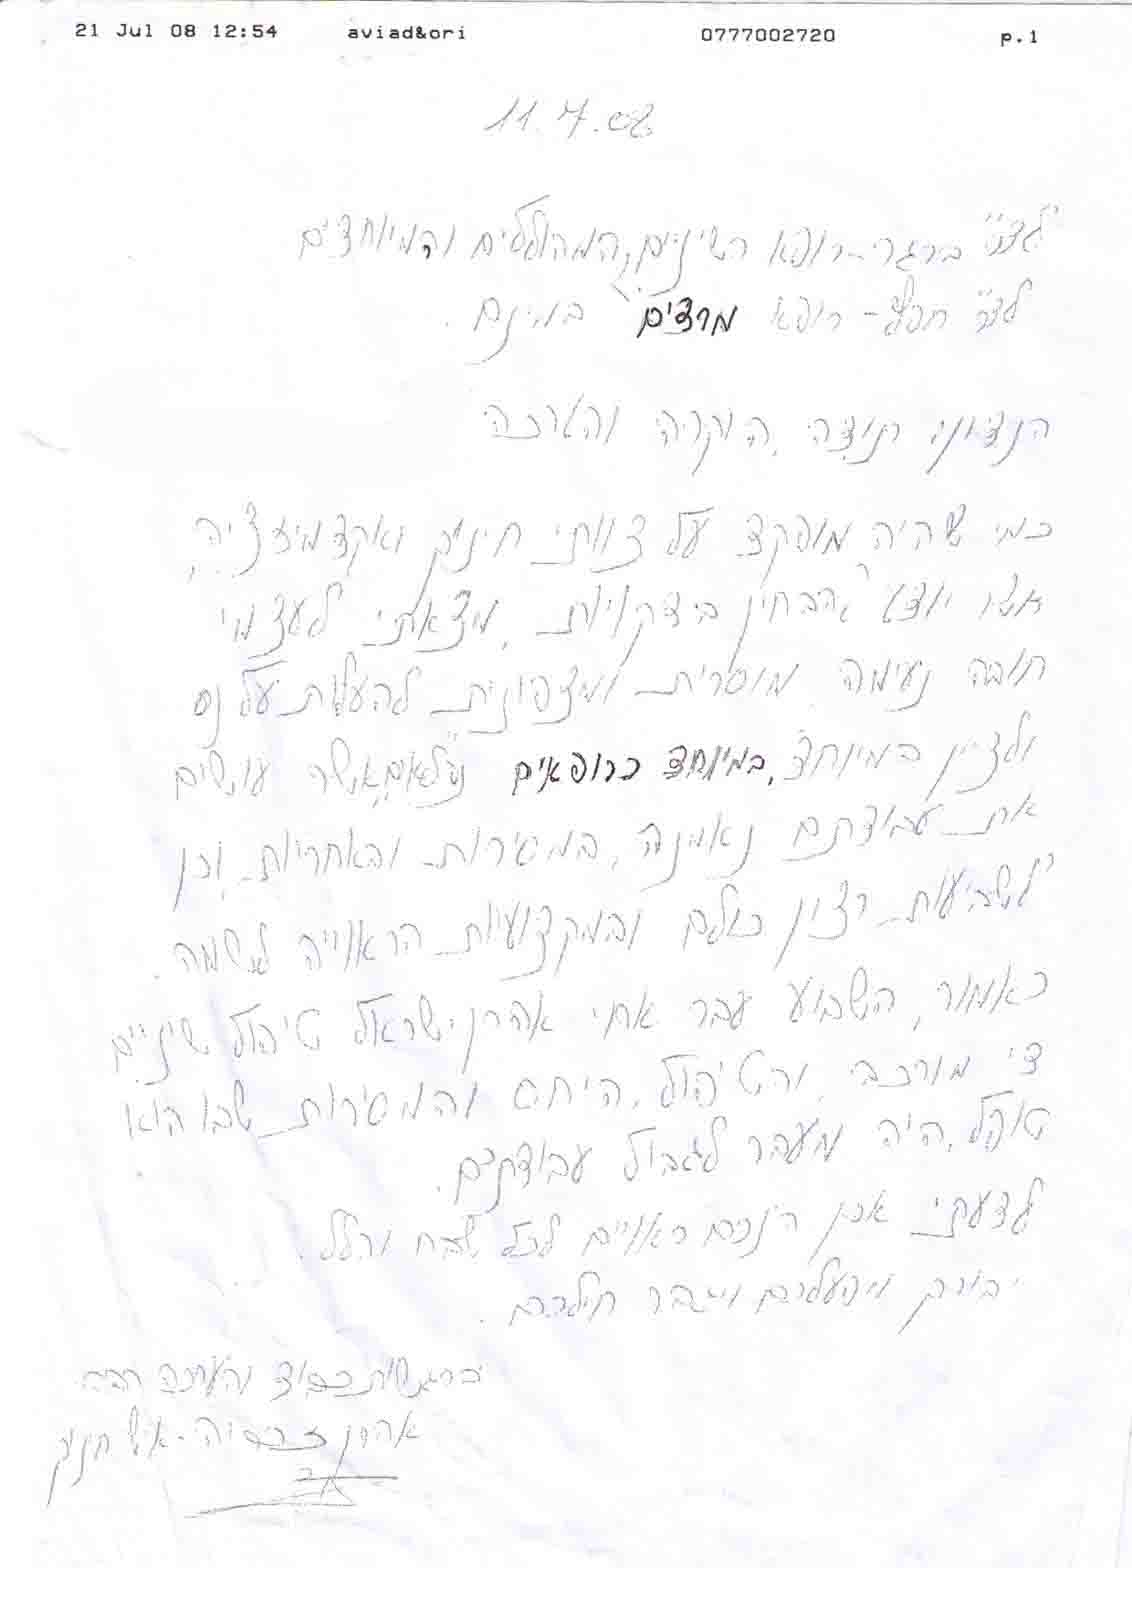 21 Jul 08 12:54 aviad&ori 0777002720 p.1
11.7.08
לד"ר ברגר - רופא השיניים, המהוללים והמיוחדים
לד"ר - רופא מרדים במינם.
הנדון: תודה, הוקרה והערכה
כמי שהיה מופקד על צוותי חינוך ואקדמיזציה,
אשר יודע להבחין בדקויות, מצאתי לעצמי
חובה נעימה מוסרית ומצפונית להעלות על נס
ולציין במיוחד, במיוחד כרופאים נפלאים אשר עושים
את עבודתם נאמנה, במסירות והאחריות, וכן
לשביעות רצון כולם ובמקצועיות הראוייה לשמה.
כאמור, השבוע עבר אחי אהרן ישראל טיפול שיניים
די מורכב, והטיפול, היחס והמסירות שבו הוא
טופל, היה מעבר לגבול עבודתכם.
לדעתי אכן הנכם ראויים לכל שבח והלל.
יבורך מפעלכם ויגבר חילכם.
ברגשות כבוד והערכה רבה
אהרן - איש חינוך